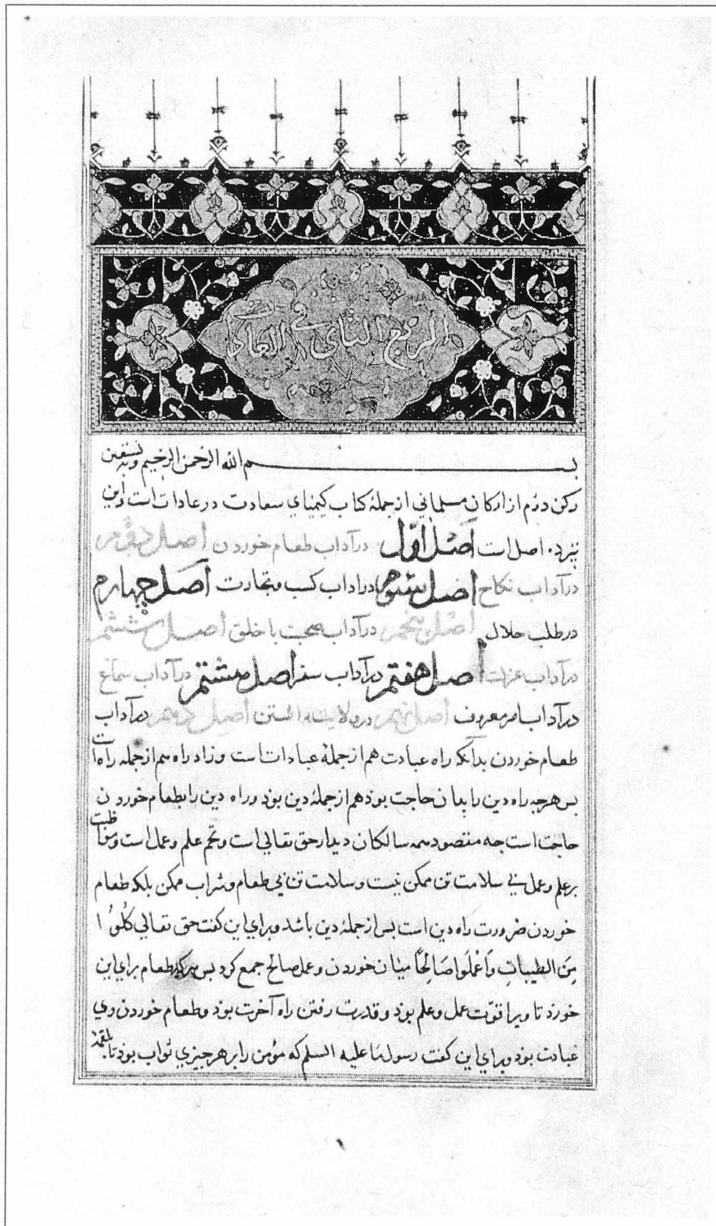 الربع الثانی فی العادات
بسم الله الرحمن الرحیم وبه نستعین
رکن دوم از ارکان مسلمانی از جملهٔ کتاب کیمیای سعادت در عادات است واین
نیز ده اصل است اصل اوّل در آداب طعام خوردن اصل دوّم
در آداب نکاح اصل سوم در اداب کسب وتجارت اصل چهارم
در طلب حلال اصل پنجم در آداب صحبت با خلق اصل ششم
در آداب عزلت اصل هفتم در آداب سفر اصل هشتم در آداب سماع
در آداب امر معروف اصل نهم در ولایت داشتن اصل دهم در آداب
طعام خوردن بدانکه راه عبادت هم از جملهٔ عبادات است وزاد راه هم از جمله راه است
بس هرجه راه دین را بدان حاجت بوذ هم از جملهٔ دین بوذ وراه دین را بطعام خوردن
حاجت است جه مقصود همه سالکان دیدار حق تعالی است وتخم علم وعمل است ومواظبت
بر علم وعمل بی سلامت تن ممکن نیست وسلامت تن بی طعام وشراب ممکن بلکه طعام
خوردن ضرورت راه دین است بس از جملهٔ دین باشد وبرای این کفت حق تعالی کُلُوُا
مِنَ الطیباتِ وَاعْمَلُوا صَالِحًا میان خوردن وعمل صالح جمع کرد بس هرکه طعام برای این
خورد تا ویرا قوّت عمل وعلم بوذ وقدرت رفتن راه آخرت بوذ وطعام خوردن وی
عبادت بوذ وبرای این کفت رسول ما علیه السلم که مؤمن را بر هر جیزی ثواب بوذ تا بلقمهٔ